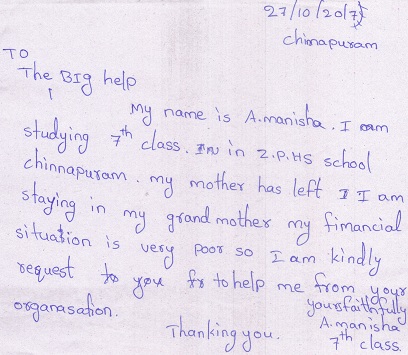 27/10/2017
chinnapuram
TO
The BIG help
My name is A.manisha. I am
studying 7th class. IN in Z.P.HS school
chinnapuram. my mother has left I I am
staying in my grand mother my fimancial
situation is very poor so I am kindly
request to you fr to help me from your
organasation.
yours faithfully
Thanking you. A.manisha
7th class.